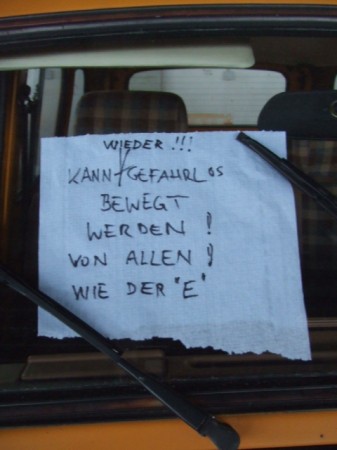 WIEDER!!!
KANN GEFAHRLOS
BEWEGT
WERDEN!
VON ALLEN!
WIE DER "E"